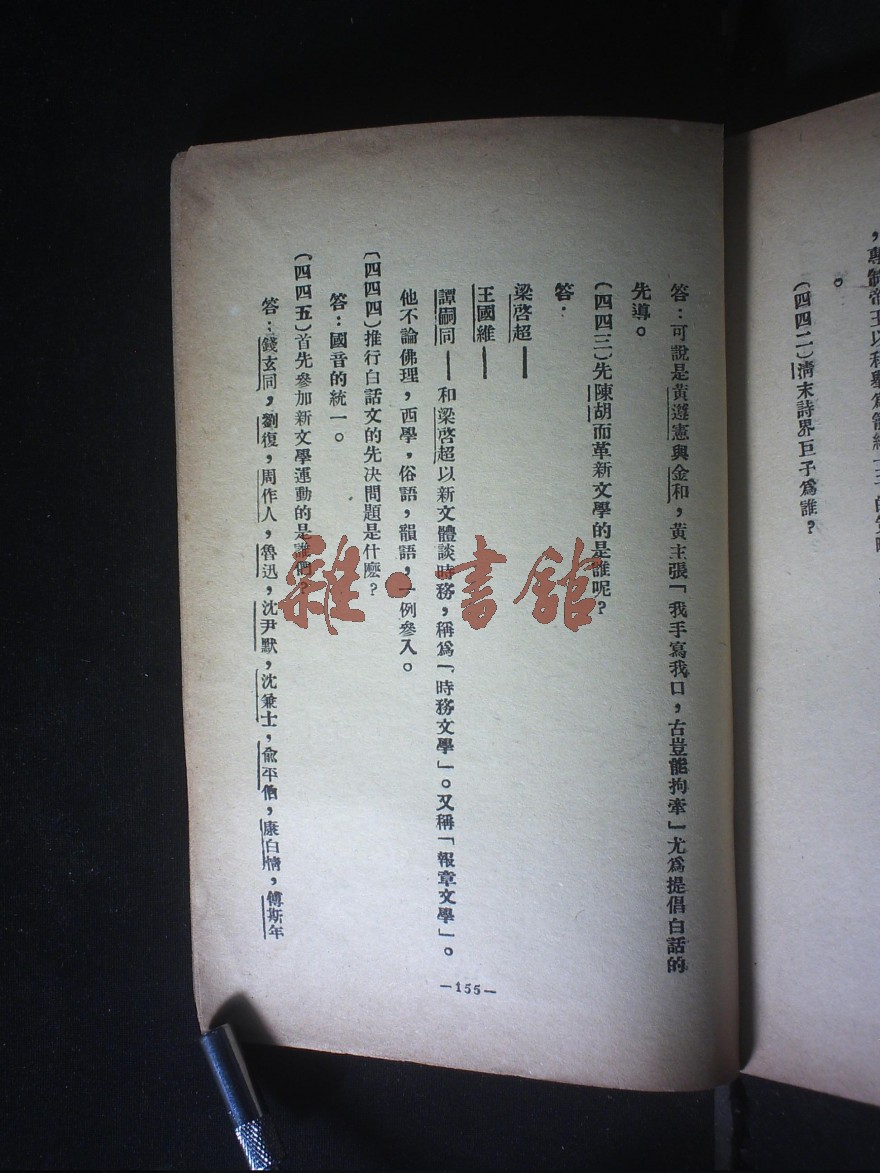 (四四二)清末詩界巨子爲誰?
答:可說是黃遵憲與金和,黃主張「我手寫我口,古豈能拘牽」尤爲提倡白話的
先導。
(四四三)先陳胡而革新文學的是誰呢?
答.
梁啓超——
王國維——
譚嗣同——和梁啓超以新文體談時務,稱爲「時務文學」。又稱「報章文學」。
他不論佛理,西學,俗語,韻語,一例參入。
(四四四)推行白話文的先决問題是什麽?
答:國音的統一。
(四四五)首先參加新文學運動的是誰們?
答:錢玄同,劉復,周作人,魯迅,沈尹默,沈兼士,俞平伯,康白情,傅斯年
—155—
雜·書館